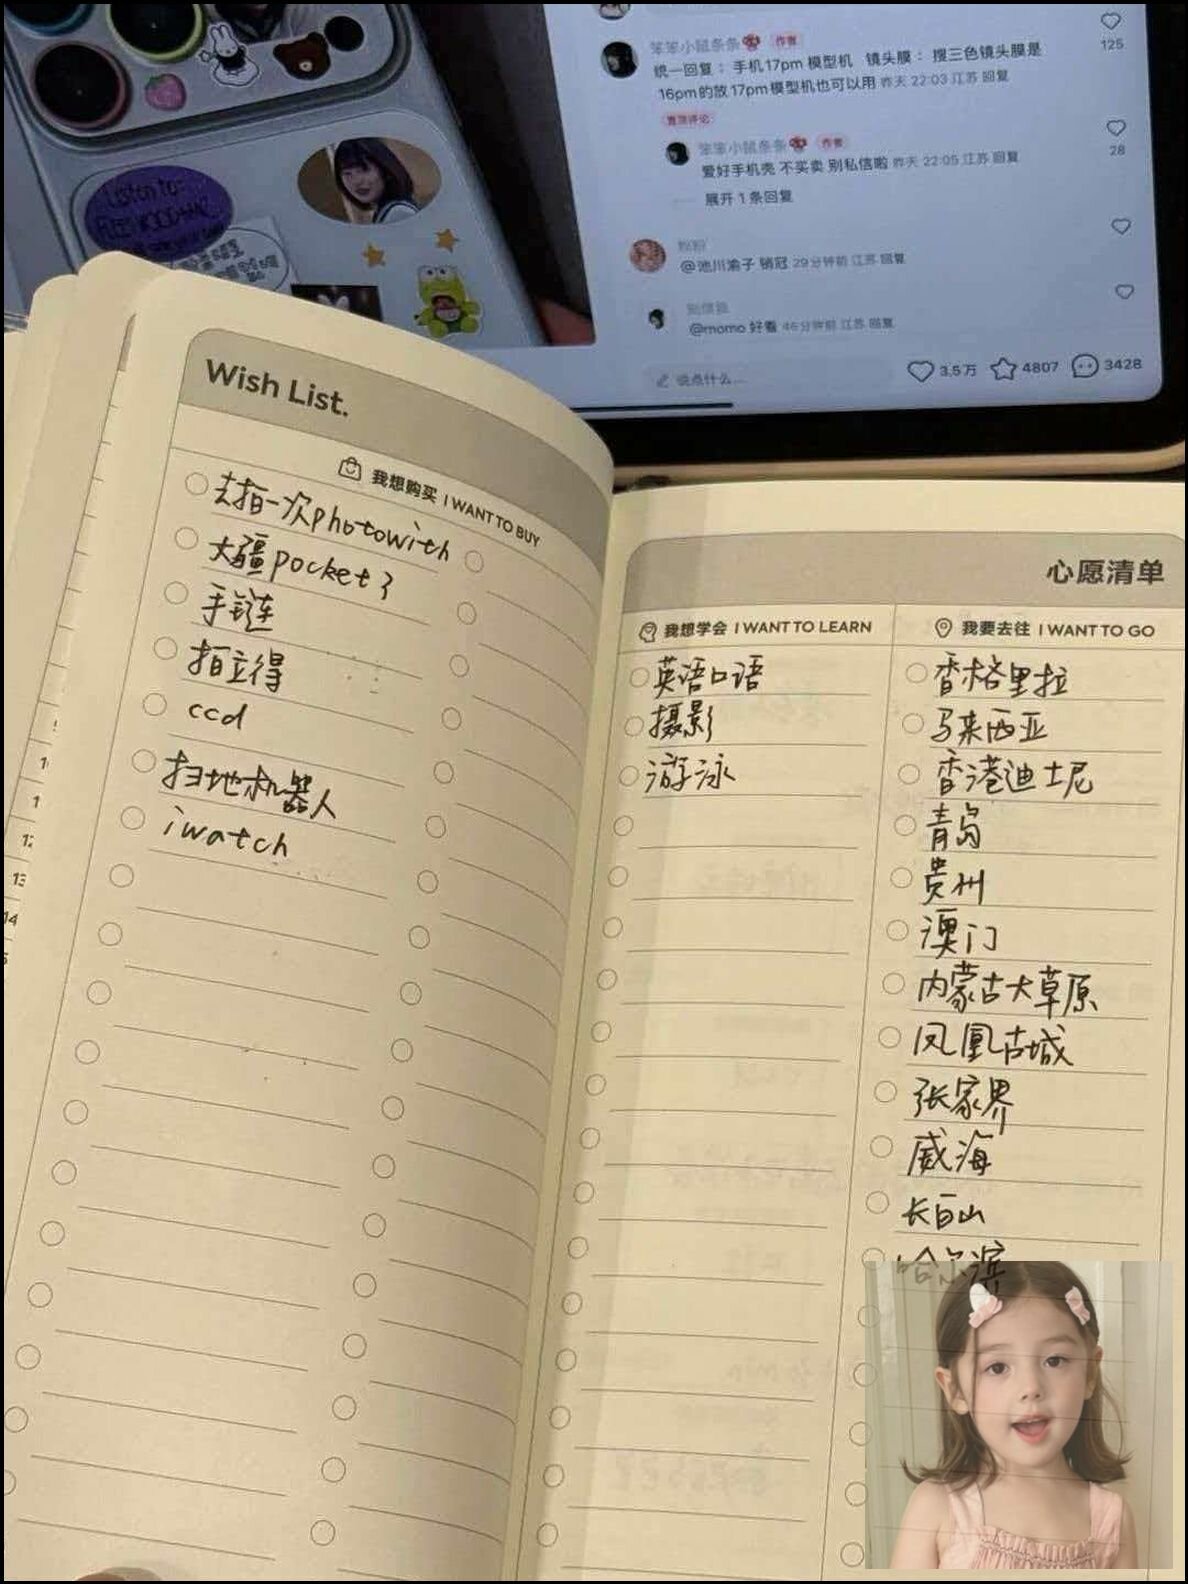 作者
统一回复：手机17pm 模型机 镜头膜：搜三色镜头膜是
16pm的放17pm模型机也可以用 昨天 22:03 江苏 回复
125
置顶评论
作者
爱好手机壳 不买卖 别私信啦 昨天 22:05 江苏 回复
28
展开 1 条回复
@池川渝子 销冠 29分钟前 江苏 回复
@momo 好看 46分钟前 江苏 回复
说点什么...
3.5万 4807 3428
Listen to:
Wish List.
我想购买 I WANT TO BUY
去拍一次photowith
大疆pocket3
手链
拍立得
ccd
扫地机器人
iwatch
心愿清单
我想学会 I WANT TO LEARN
英语口语
摄影
游泳
我要去往 I WANT TO GO
香格里拉
马来西亚
香港迪士尼
青岛
贵州
澳门
内蒙古大草原
凤凰古城
张家界
威海
长白山
哈尔滨